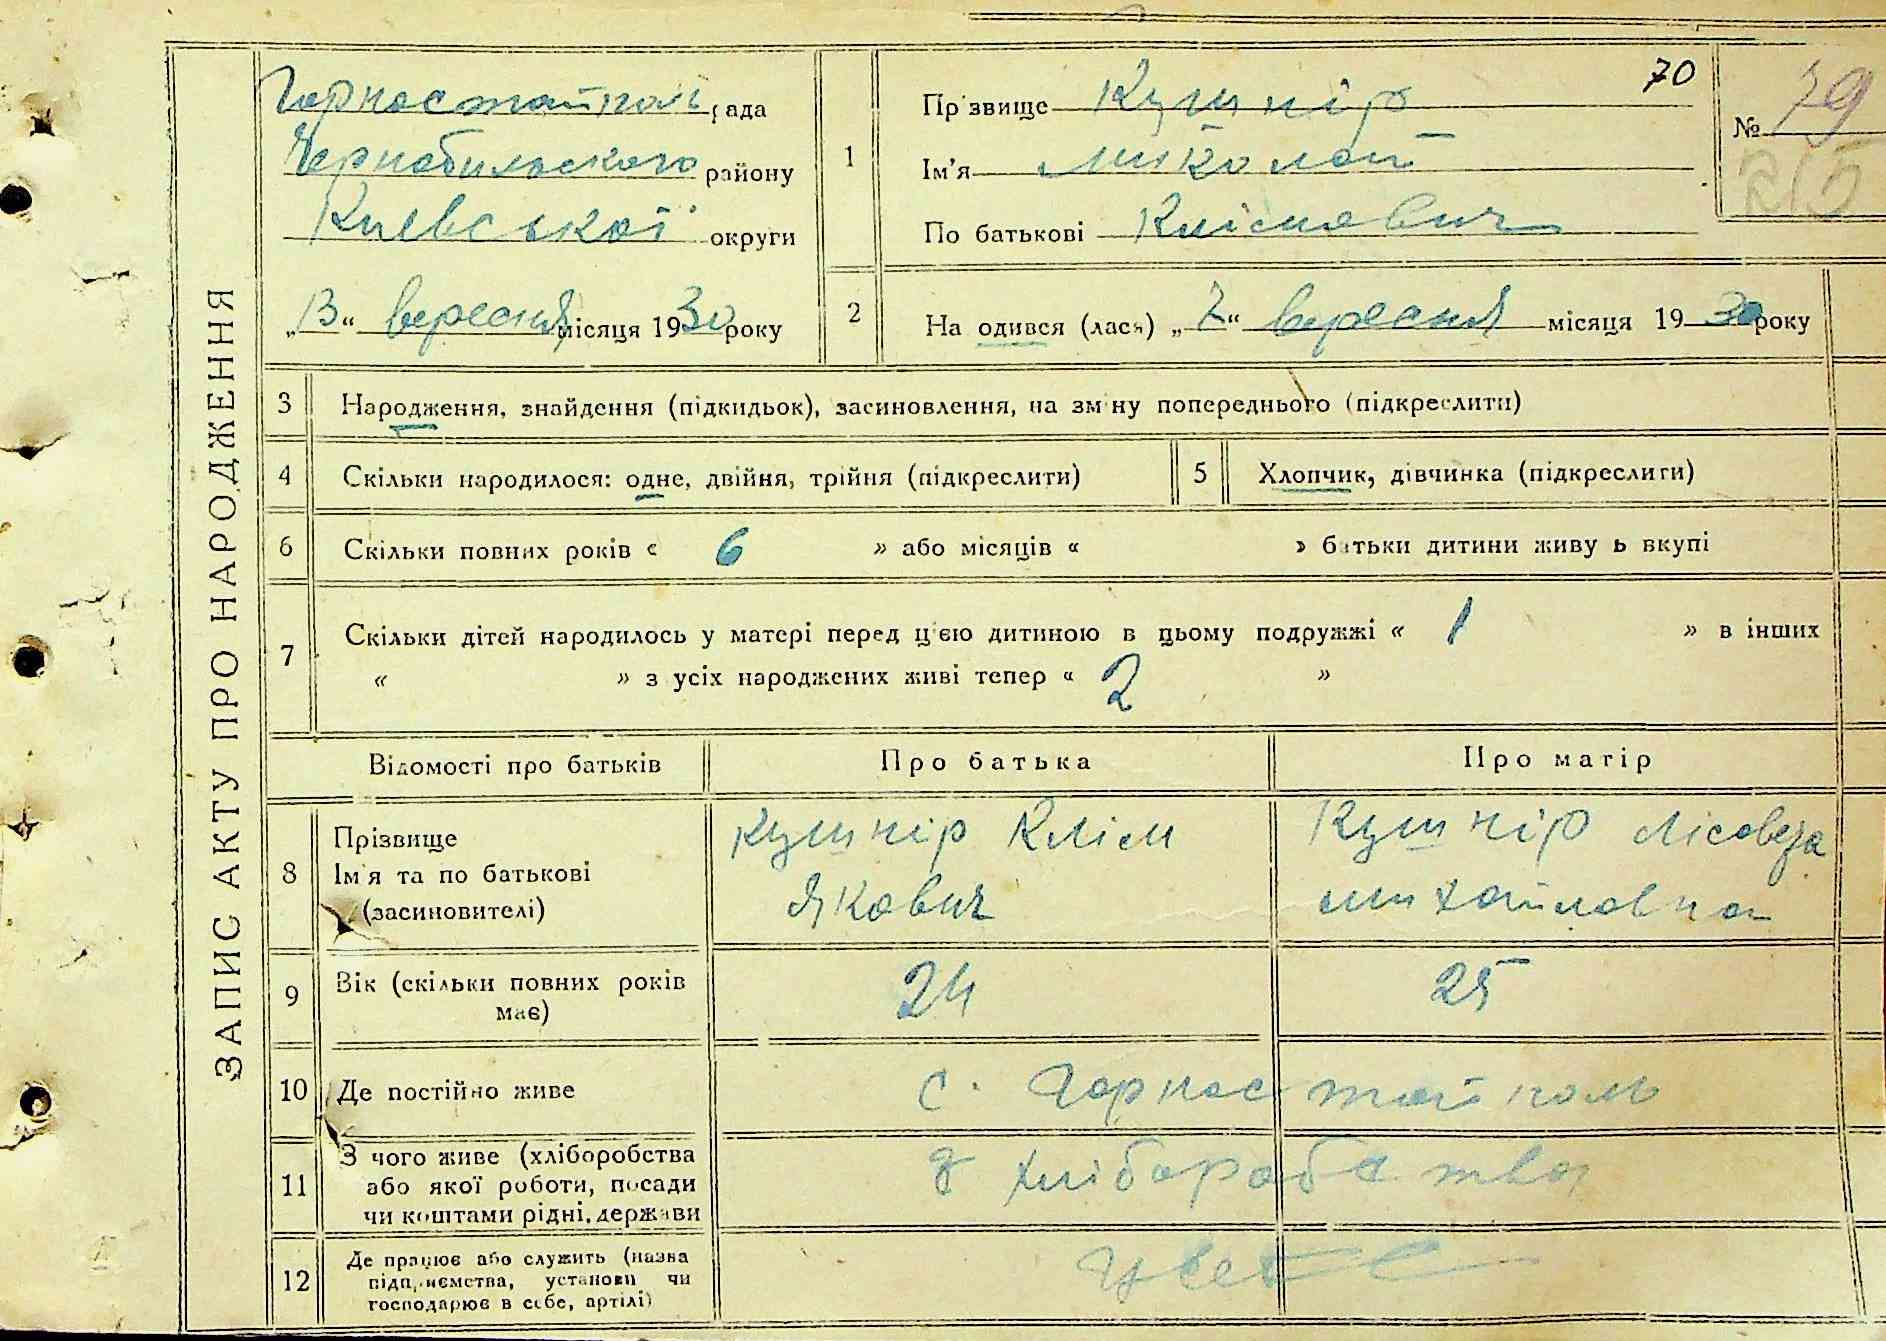 ЗАПИС АКТУ ПРО НАРОДЖЕННЯ
Горностайполь рада
Чернобильского району
Київської округи
„13“ вересня місяця 1930 року
1
Прізвище Кушнір
70
Ім'я Миколай
По батькові Клімович
№ 79
2
На одився (лася) „7“ вересня місяця 1930 року
3 Народження, знайдення (підкидьок), засиновлення, на зміну попереднього (підкреслити)
4 Скільки народилося: одне, двійня, трійня (підкреслити)
5 Хлопчик, дівчинка (підкреслити)
6 Скільки повних років « 6 » або місяців « » батьки дитини живуть вкупі
7 Скільки дітей народилось у матері перед цією дитиною в цьому подружжі « 1 » в інших
« » з усіх народжених живі тепер « 2 »
Відомості про батьків
Про батька
Про матір
8 Прізвище
Ім'я та по батькові
(засиновителі)
Кушнір Клім
Якович
Кушнір Лісовета
Михайловна
9 Вік (скільки повних років
має)
24
25
10 Де постійно живе
с. Горностайполь
11 З чого живе (хліборобства
або якої роботи, посади
чи коштами рідні, держави
з хліборобства
12 Де працює або служить (назва
підприємства, установи чи
господарює в себе, артілі)
у себе